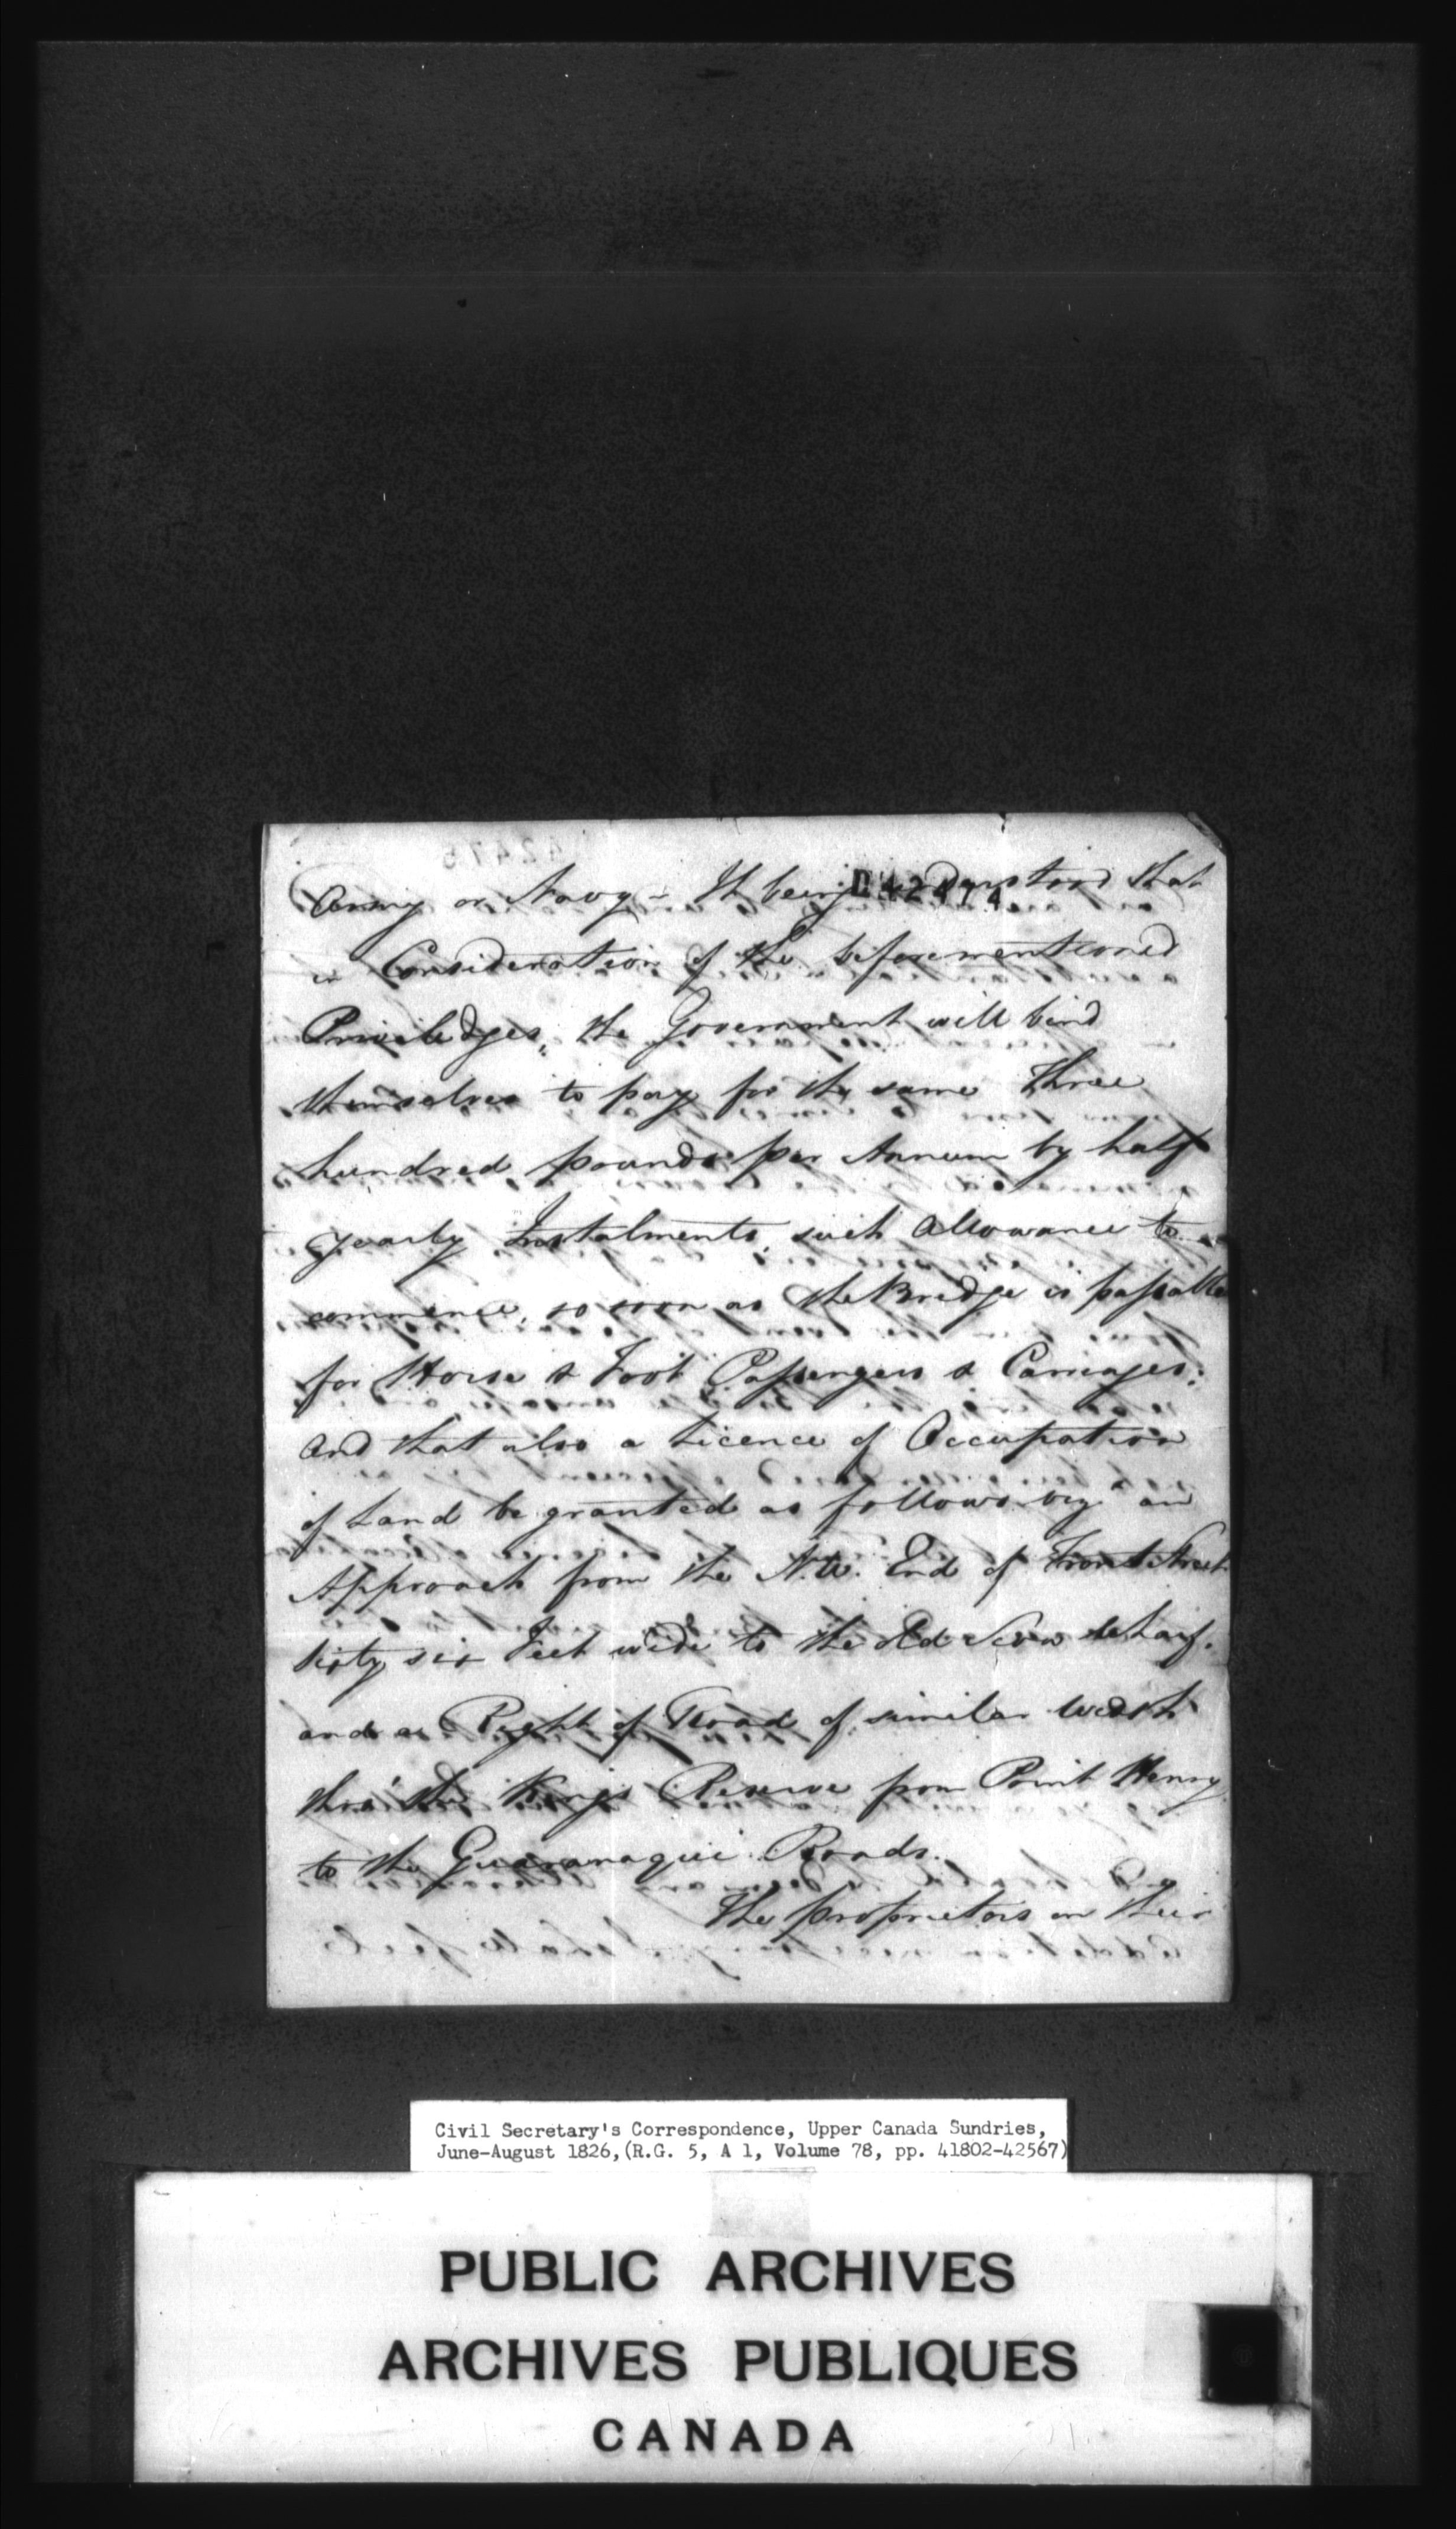 D42474
Army or Navy – It being understood that
in Consideration of the beforementioned
Priviledges, the Government will bind
themselves to pay for the same Three
hundred pounds per Annum by half
yearly Instalments, such Allowance to
commence, so soon as the Bridge is passable
for Horse & Foot Passengers & Carriages;
and that also a Licence of Occupation
of Land be granted as follows viz. an
Approach from the N.W. End of Front Street
sixty six Feet wide to the old Scow Wharf.
and a Right of Road of similar width
thro' the Kings Reserve from Point Henry
to the Gananaqui Roads.
The proprietors on their
Civil Secretary's Correspondence, Upper Canada Sundries,
June-August 1826,(R.G. 5, A 1, Volume 78, pp. 41802-42567)
PUBLIC ARCHIVES
ARCHIVES PUBLIQUES
CANADA